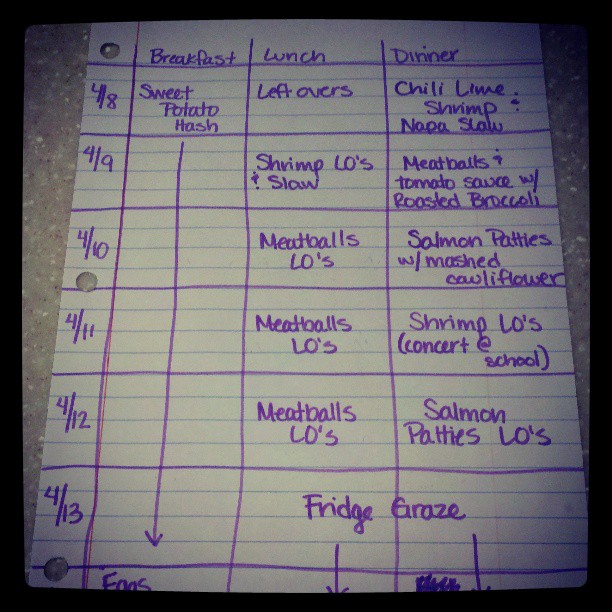 Breakfast Lunch Dinner
4/8 Sweet Leftovers Chili Lime
Potato Shrimp &
Hash Napa Slaw
4/9 Shrimp LO's Meatballs &
& Slaw tomato sauce w/
Roasted Broccoli
4/10 Meatballs Salmon Patties
LO's w/mashed
cauliflower
4/11 Meatballs Shrimp LO's
LO's (concert @
school)
4/12 Meatballs Salmon
LO's Patties LO's
4/13 Fridge Graze
Eggs